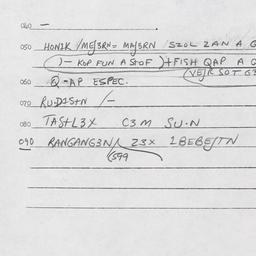 040 —
050 HON1K /MES3RN= MAS3RN SZOL ZAN A G
)— KOP FUN A STOF )+FISH QAP A G
(VEJR SOT G3
060 Q-AP ESPEC.
070 RU-D1S+N /—
080 TAS+L3X C3M SU-N
090 RANGANG3N/ 23X 1BEBEJTN
(599